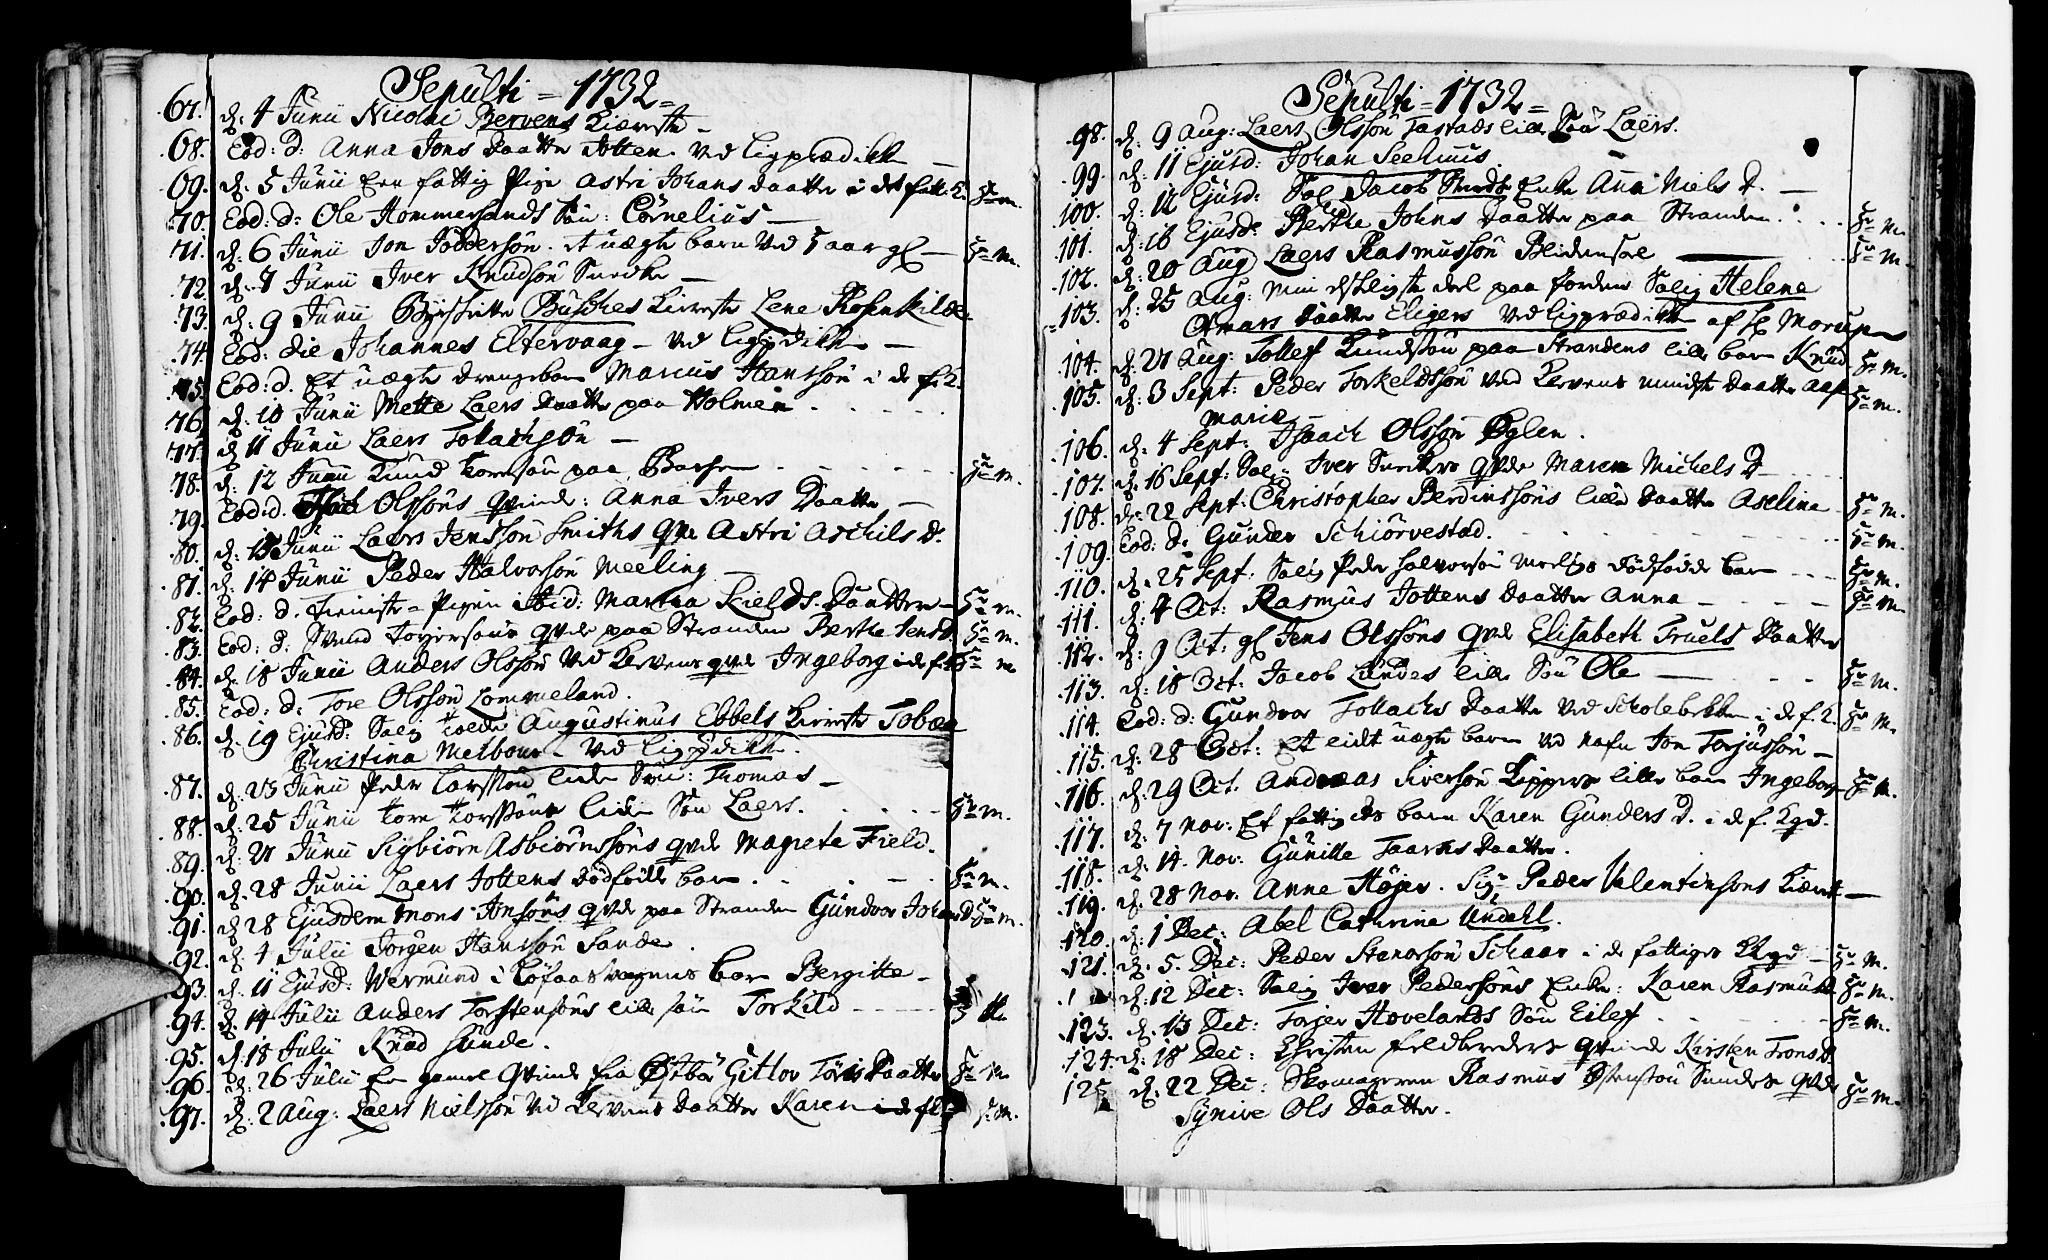 Sepulti = 1732 =
67. d: 4 Junii Nicolai Bervens Kiæreste –
68. Eod: d: Anna Jons Daatter Jotten. Ved Ligprædiken –
69. d: 5 Junii Een fattig Pige Astri Johans daatter i det fatt: K: 5r m.
70. Eod: d: Ole Hommersands Søn: Cornelius –
71. d: 6 Junii Jon Joddersøn. et uægte barn ved 5 aar gl – 5r m.
72. d: 7 Junii Iver Knudsøn Snedker –
73. d: 9 Junii Busches Kiæreste Lene Rosenkilde
74. Eod: die Johannes Eltervaag – ved Ligprædiken –
75. Eod: d. Et uægte drengebarn Marcus Hanssøn i de f. K.
76. d: 10 Junii Mette Laers Daatter paa Holmen
77. d: 11 Junii Laers Tollachsøn –
78. d: 12 Junii Knud Toresøn paa 5r m.
79. Eod: d. Isach Olssøns qvinde: Anna Ivers Daatter –
80. d: 13 Junii Laers Jenssøn Smiths qvd Astri Aschils D.
81. d: 14 Junii Peder Halvorsøn Meeling –
82. Eod: d. Tieniste-Pigen ibid: Martha Kields Daatter – 5r m.
83. Eod: d: Svend qvde paa Stranden Berthe Jens D. 5r m.
84. d: 18 Junii Anders Olssøn ved Kervens qvd Ingeborg i de f. K 5r m
85. Eod: d: Tore Olssøn Lommeland.
86. d: 19 Ejusd: Salig Augustinus Ebbels Kiæreste Tobæa
Christina Melbour – ved Ligprædiken.
87. d: 23 Junii Peder Larssøns lille Søn: Thomas –
88. d: 25 Junii Tore lille Søn Laers. 5r m.
89. d: 27 Junii Sigbiørn Asbiørnssøns qvde Magrete Field.
90. d: 28 Junii Laers Jottens dødfødde barn 5r m.
91. d: 28 Ejusdem Mons Jonsøns qvde paa Stranden Gundvor Johans D 5r m.
92. d: 4 Julii Jørgen Hanssøn Sande.
93. d: 11 Ejusd: Wermund i barn Bergitte –
94. d: 14 Julii Anders Torstensøns lille søn Torkild
95. d: 18 Julii Knud Hunde.
96. d: 26 Julii En gamel Qvinde fra Østbø Gitlov Daatter 5r m
97. d: 2 Aug: Laers Nielssøn ved Kervens Daatter Karen i de f. K 5r m.
Sepulti = 1732 =
98. d: 9 Aug: Laers Olssøn Tastads lille Søn Laers.
99. d: 11 Ejusd: Johan Seehuus.
100. d: 12 Ejusd: Sal. Jacob Smeds Enke Anna Niels D. –
101. d: 16 Ejusd: Berthe Johns Daatter paa Stranden 5r m.
102. d: 20 Aug Laers Rasmussøn Bleidensoe 5r m.
103. d: 25 Aug: Min deel paa Jorden Salig Helena
Daatter Eligers ved Ligprædiken af Hr Morup
104. d: 27 Aug: Tollef Knudssøn paa Strandens lille barn Knud 5r m.
105. d: 3 Sept: Peder Torkeldssøn ved Kervens mindste daatter 5r m.
Marie –
106. d: 4 Sept: Isaach Olssøn Øglen.
107. d: 16 Sept: Salig Iver Snedkers qvde Maren Michels D
108. d: 22 Sept: Christopher Berdinssøns lille daatter Aseline 5r m.
109. Eod: d: Gunder Schiørvestad. 5r m.
110. d: 25 Sept: Salig Peder Halvorsøn Melings dødfødde barn 5r m.
111. d: 4 Oct: Rasmus Jottens daatter Anna – 5r m
112. d: 9 Oct: gl Jens Olssøns qvd Elisabeth Truels Daatter
113. d: 18 Oct: Jacob Lundes lille Søn Ole – 5r m.
114. Eod: d: Gundvor Tollachs Daatter ved Scholebekken i de f. K. 5r m.
115. d: 28 Oct: Et lidet uægte barn ved nafn Jon Torjussøn –
116. d: 29 Oct. Andreas Siversøn lille barn Ingeborg 5r m.
117. d: 7 Nov: Et fattig barn Karen Gunders D. i de f. Kgd.
118. d: 14. Nov: Gunille Daatter.
119. d: 28 Nov. Anne Høyer. Sigr Peder Valentinsøns Kiæreste –
120. d: 1 Dec: Abel Cathrine Undahl.
121. d: 5. Dec: Peder Schaar i de fattiges Kgd – 5r m.
d: 12 Dec: Salig Iver Pedersøns Enke: Karen Rasmus D 5r m.
123. d: 13 Dec: Torjer Hovelands Søn Eilef 5r m.
124. d: 18 Dec: Christen qvinde Kirsten Trons D.
125 d: 22 Dec: Skomageren Rasmus qvde 5r m.
Synive Ols Daatter.